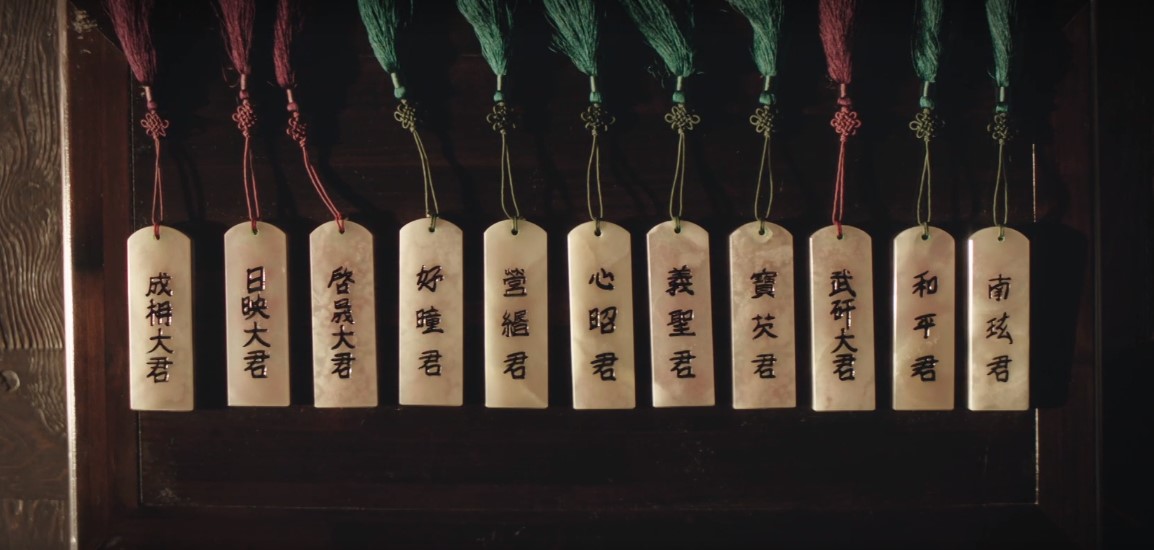 成枏大君
日映大君
啓晟大君
好瞳君
營緡君
心昭君
義聖君
寶芡君
武矸大君
和平君
南玹君